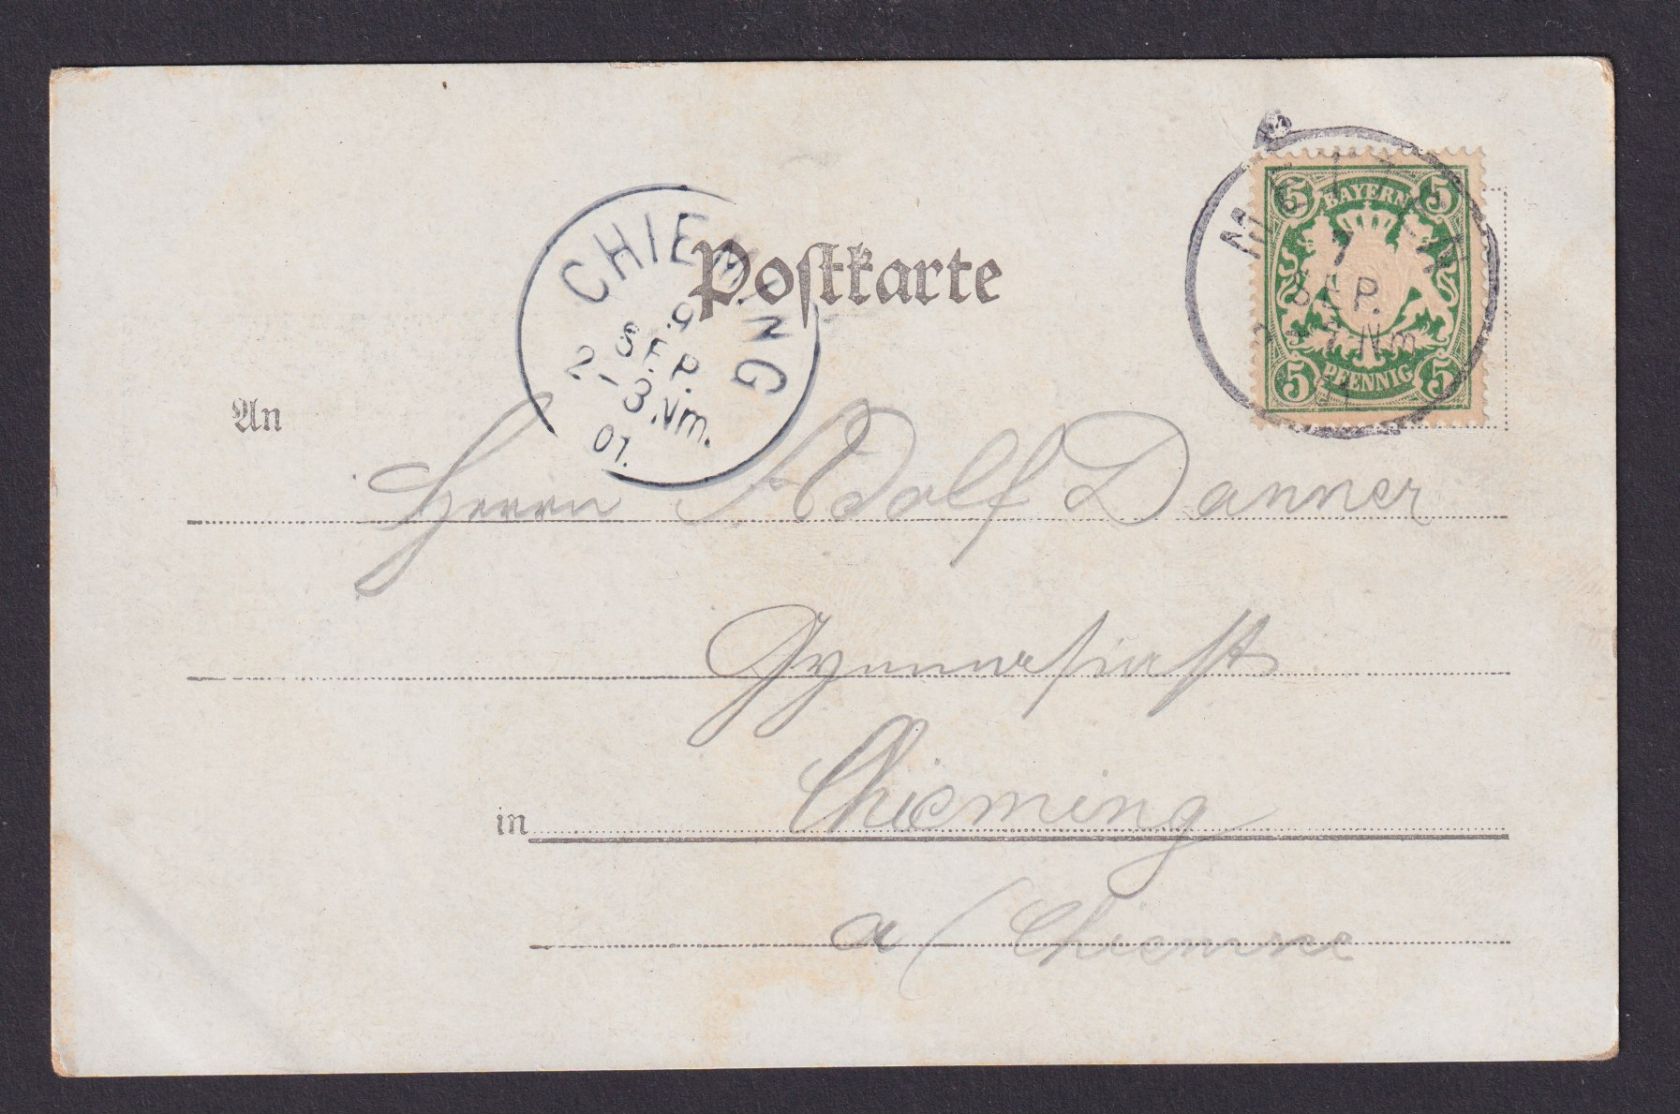 Postkarte
CHIEMING
9
SEP.
2-3Nm.
01.
5 BAYERN 5
7
SEP.
Nm
5 PFENNIG 5
An
Herrn Adolf Danner
Gymnasiast
in Chieming
a/Chiemsee